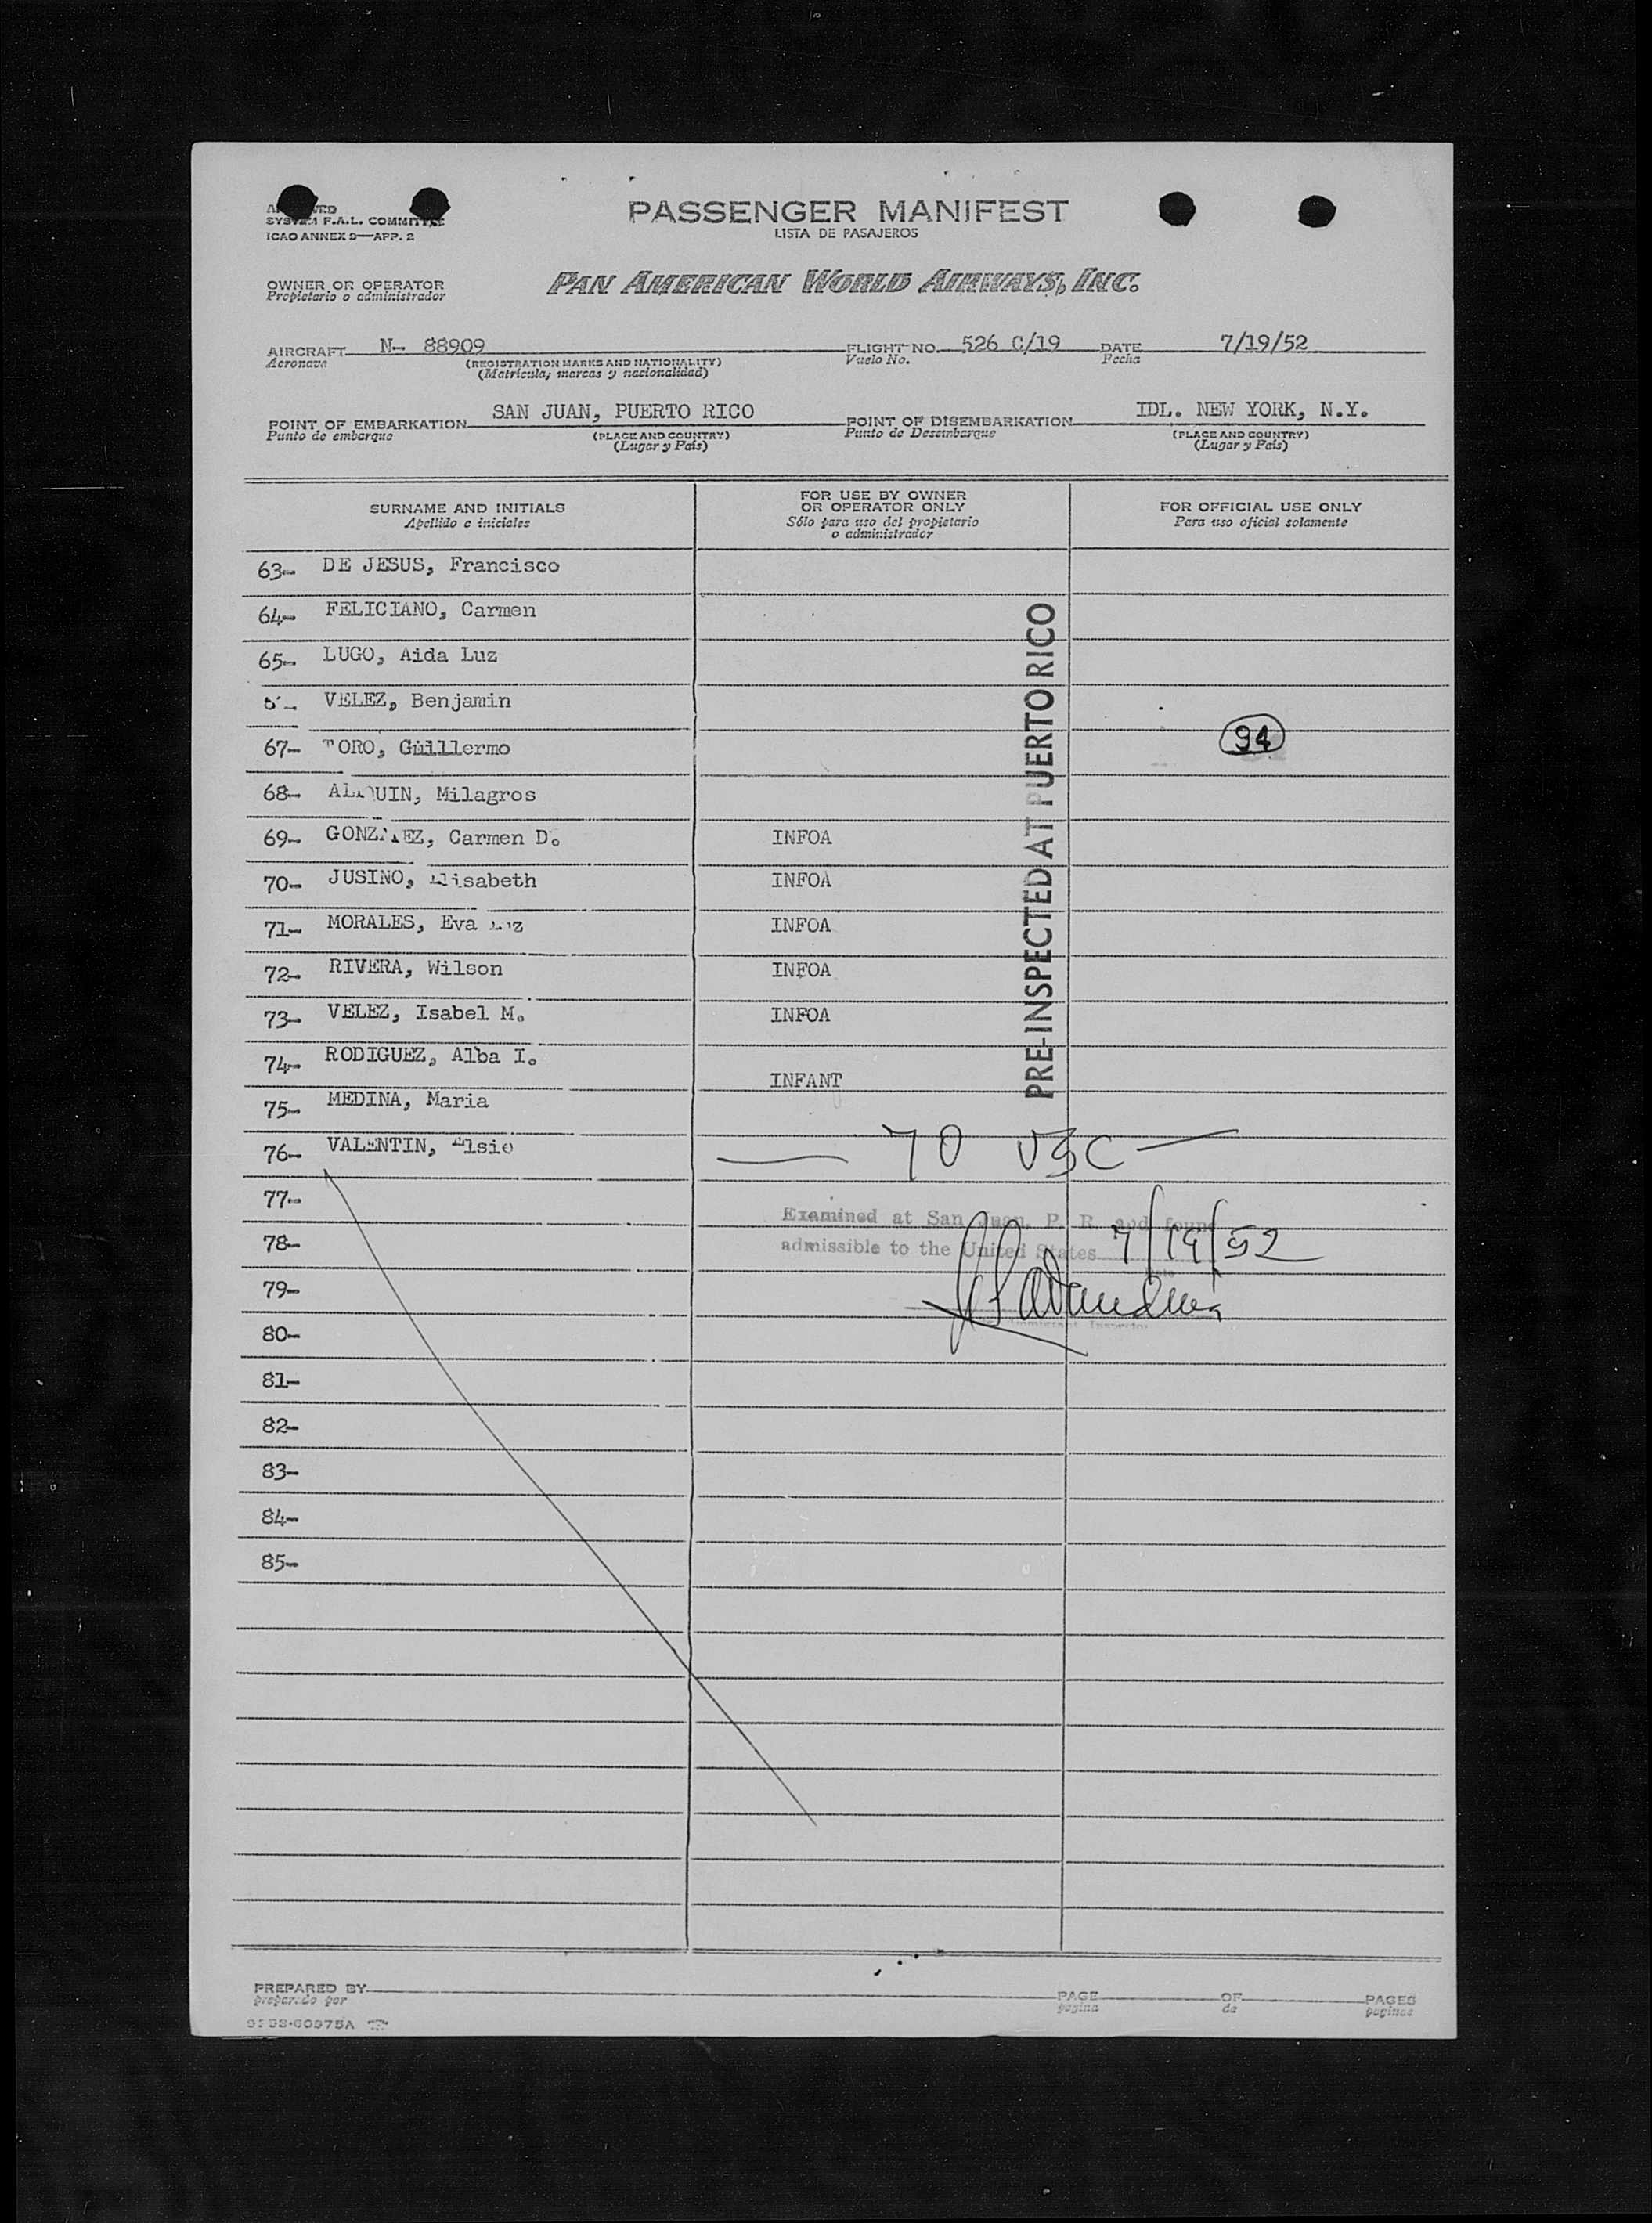 SYSTEM F.A.L. COMMITTEE
ICAO ANNEX 9—APP. 2
PASSENGER MANIFEST
LISTA DE PASAJEROS
OWNER OR OPERATOR
Propietario o administrador
PAN AMERICAN WORLD AIRWAYS, INC.
AIRCRAFT N- 88909
Aeronave
(REGISTRATION MARKS AND NATIONALITY)
(Matrícula, marcas y nacionalidad)
FLIGHT NO. 526 C/19
Vuelo No.
DATE 7/19/52
Fecha
POINT OF EMBARKATION SAN JUAN, PUERTO RICO
Punto de embarque
(PLACE AND COUNTRY)
(Lugar y País)
POINT OF DISEMBARKATION IDL. NEW YORK, N.Y.
Punto de Desembarque
(PLACE AND COUNTRY)
(Lugar y País)
SURNAME AND INITIALS
Apellido e iniciales
FOR USE BY OWNER
OR OPERATOR ONLY
Sólo para uso del propietario
o administrador
FOR OFFICIAL USE ONLY
Para uso oficial solamente
63- DE JESUS, Francisco
64- FELICIANO, Carmen
65- LUGO, Aida Luz
VELEZ, Benjamin
67- TORO, Guillermo
94
68- Milagros
69- GONZALEZ, Carmen D. INFOA
70- JUSINO, Elisabeth INFOA
71- MORALES, Eva Luz INFOA
72- RIVERA, Wilson INFOA
73- VELEZ, Isabel M. INFOA
74- RODIGUEZ, Alba I.
INFANT
75- MEDINA, Maria
76- VALENTIN, Elsie
PRE-INSPECTED AT PUERTO RICO
70 USC
77-
Examined at San Juan, P. R. and found
admissible to the United States 7/19/52
78-
79-
Immigrant Inspector
80-
81-
82-
83-
84-
85-
PREPARED BY
preparado por
PAGE
página
OF
de
PAGES
páginas